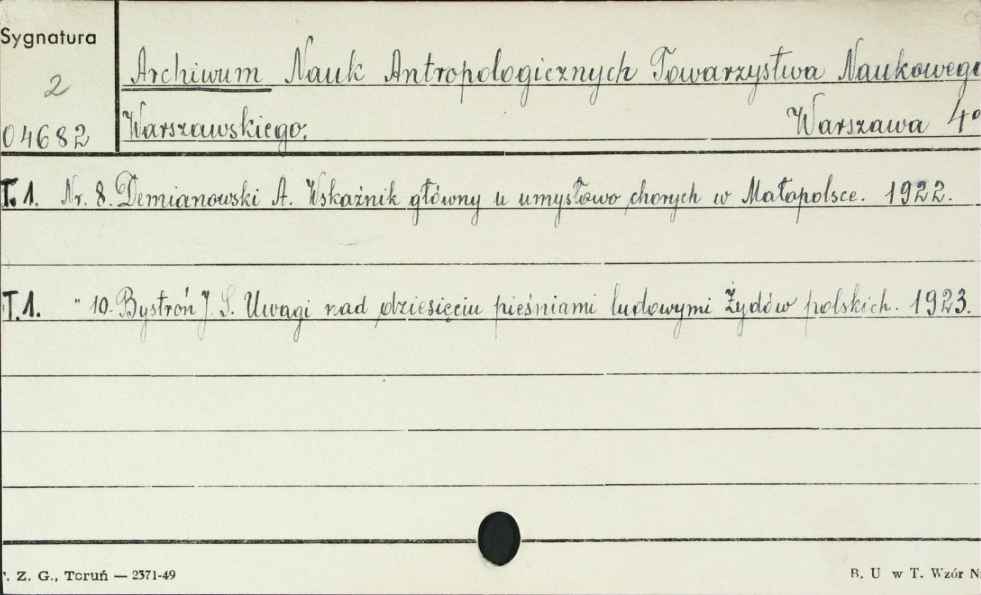 Sygnatura
2
04682
Archiwum Nauk Antropologicznych Towarzystwa Naukowego
Warszawskiego. Warszawa 4º
T. 1. Nr. 8. Demianowski A. Wskaźnik główny u umysłowo chorych w Małopolsce. 1922.
T. 1. " 10. Bystroń J. S. Uwagi nad dziesięciu pieśniami ludowymi Żydów polskich. 1923.
. Z. G., Toruń — 2371-49
B. U w T. Wzór N